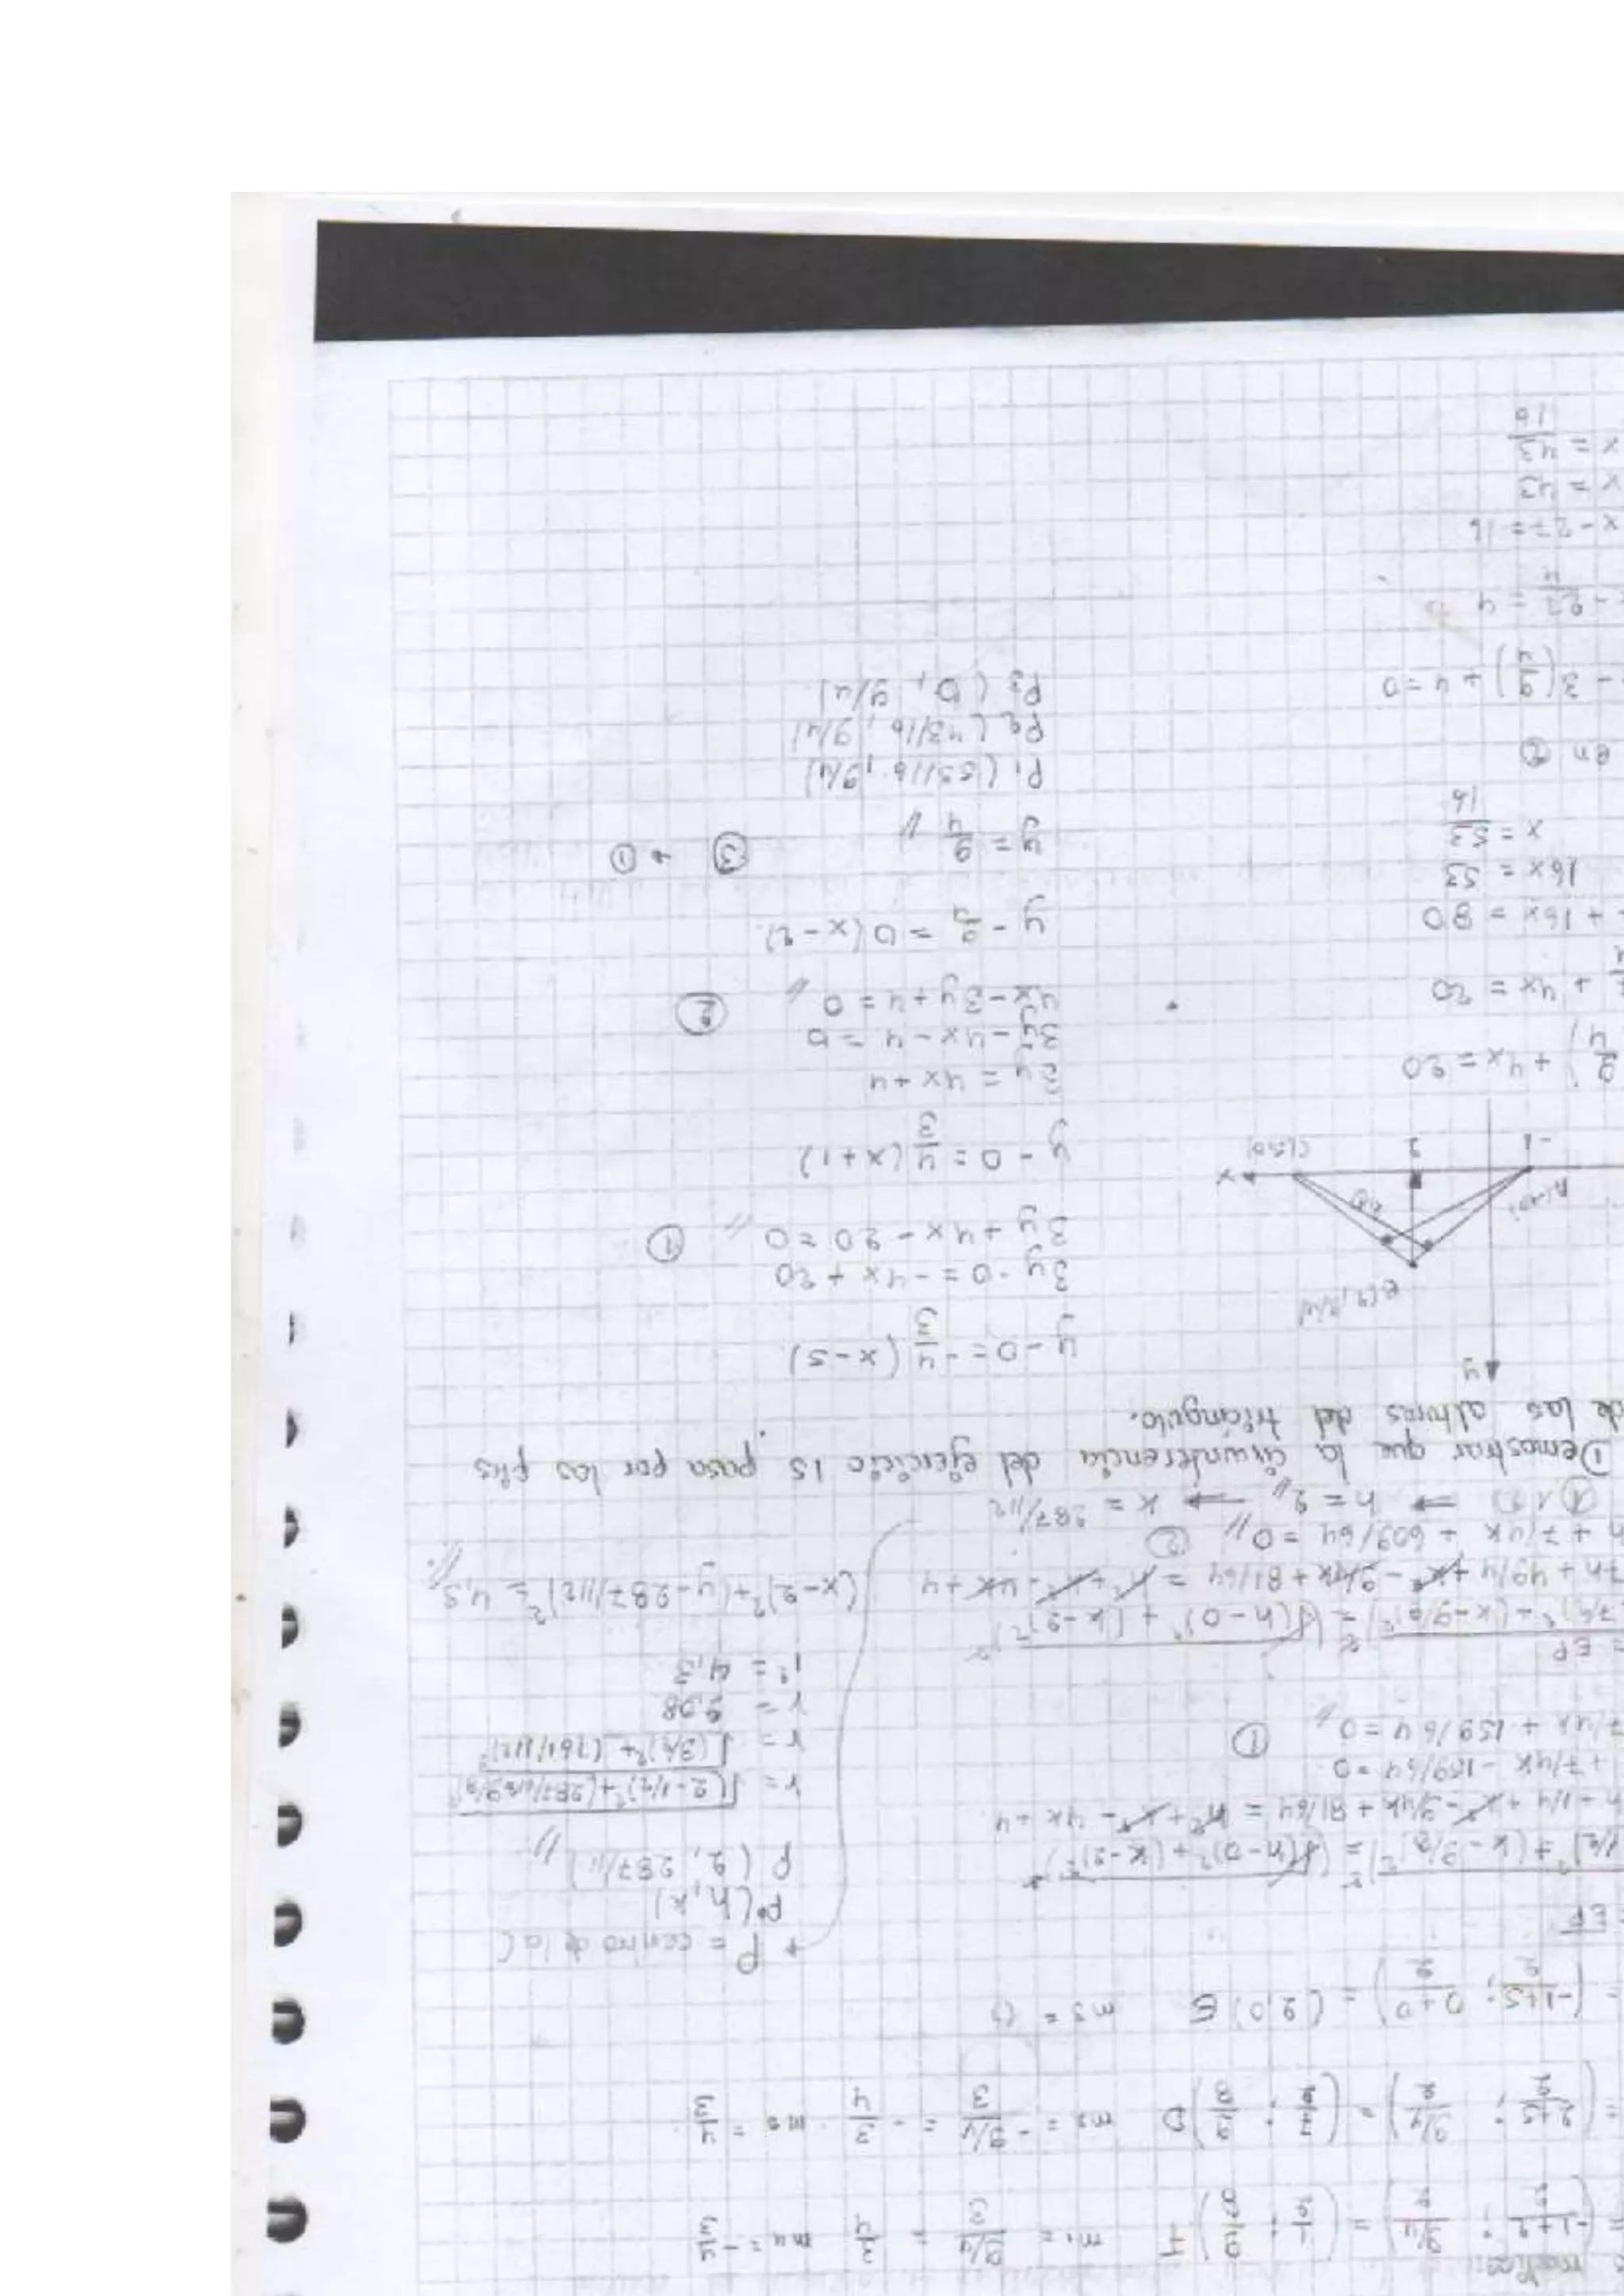 (-1+2/2 ; 9/4/2) = (1/2 ; 9/8) H m1 = 9/4/3 = 3/4 m4 = -4/3
= (2+5/2 ; 9/4/2) = (7/2 ; 9/8) D m2 = -9/4/3 = -3/4 m2 = 4/3
= (-1+5/2 ; 0+0/2) = (2,0) E m3 = 0
EP
1/2)² + (k - 9/8)² = √(h-0)² + (k-2)²
h + 1/4 + k² - 9/4k + 81/64 = h² + k² - 4k + 4
+ 7/4k - 159/64 = 0
7/4k + 159/64 = 0 // ①
EP
7/2)² - (k - 9/8)² = √(h-0)² + (k-2)²
7h + 49/4 + k² - 9/4k + 81/64 = h² + k² - 4k + 4
h + 7/4k + 609/64 = 0 // ②
① ∧ ②) ⇒ h = 2 // → k = 287/112
* P = centro de la C
P(h,k)
P(2, 287/112) //
r = √(2-1/2)² + (287/112-9/8)²
r = √(3/2)² + (161/112)²
r = 2,08
r² = 4,3
(x-2)² + (y-287/112)² = 4,3 //
① Demostrar que la circunferencia del ejercicio 15 pasa por los pies
de las alturas del triángulo.
y
B(2, 9/4)
A(-1,0)
C(5,0)
x
-1
2
y - 0 = -4/3 (x-5)
3y - 0 = -4x + 20
3y + 4x - 20 = 0 // ①
y - 0 = 4/3 (x+1)
3y = 4x + 4
3y - 4x - 4 = 0
4x - 3y + 4 = 0 // ②
y - 9/4 = 0 (x-2)
y = 9/4 // ③ + ①
P1 (53/16, 9/4)
P2 (43/16, 9/4)
P3 (0, 9/4)
9/4) + 4x = 20
+ 4x = 20
+ 16x = 80
16x = 53
x = 53/16
en ②
- 3(9/4) + 4 = 0
- 27/4 = 4
x - 27 = 16
x = 43
x = 43/16